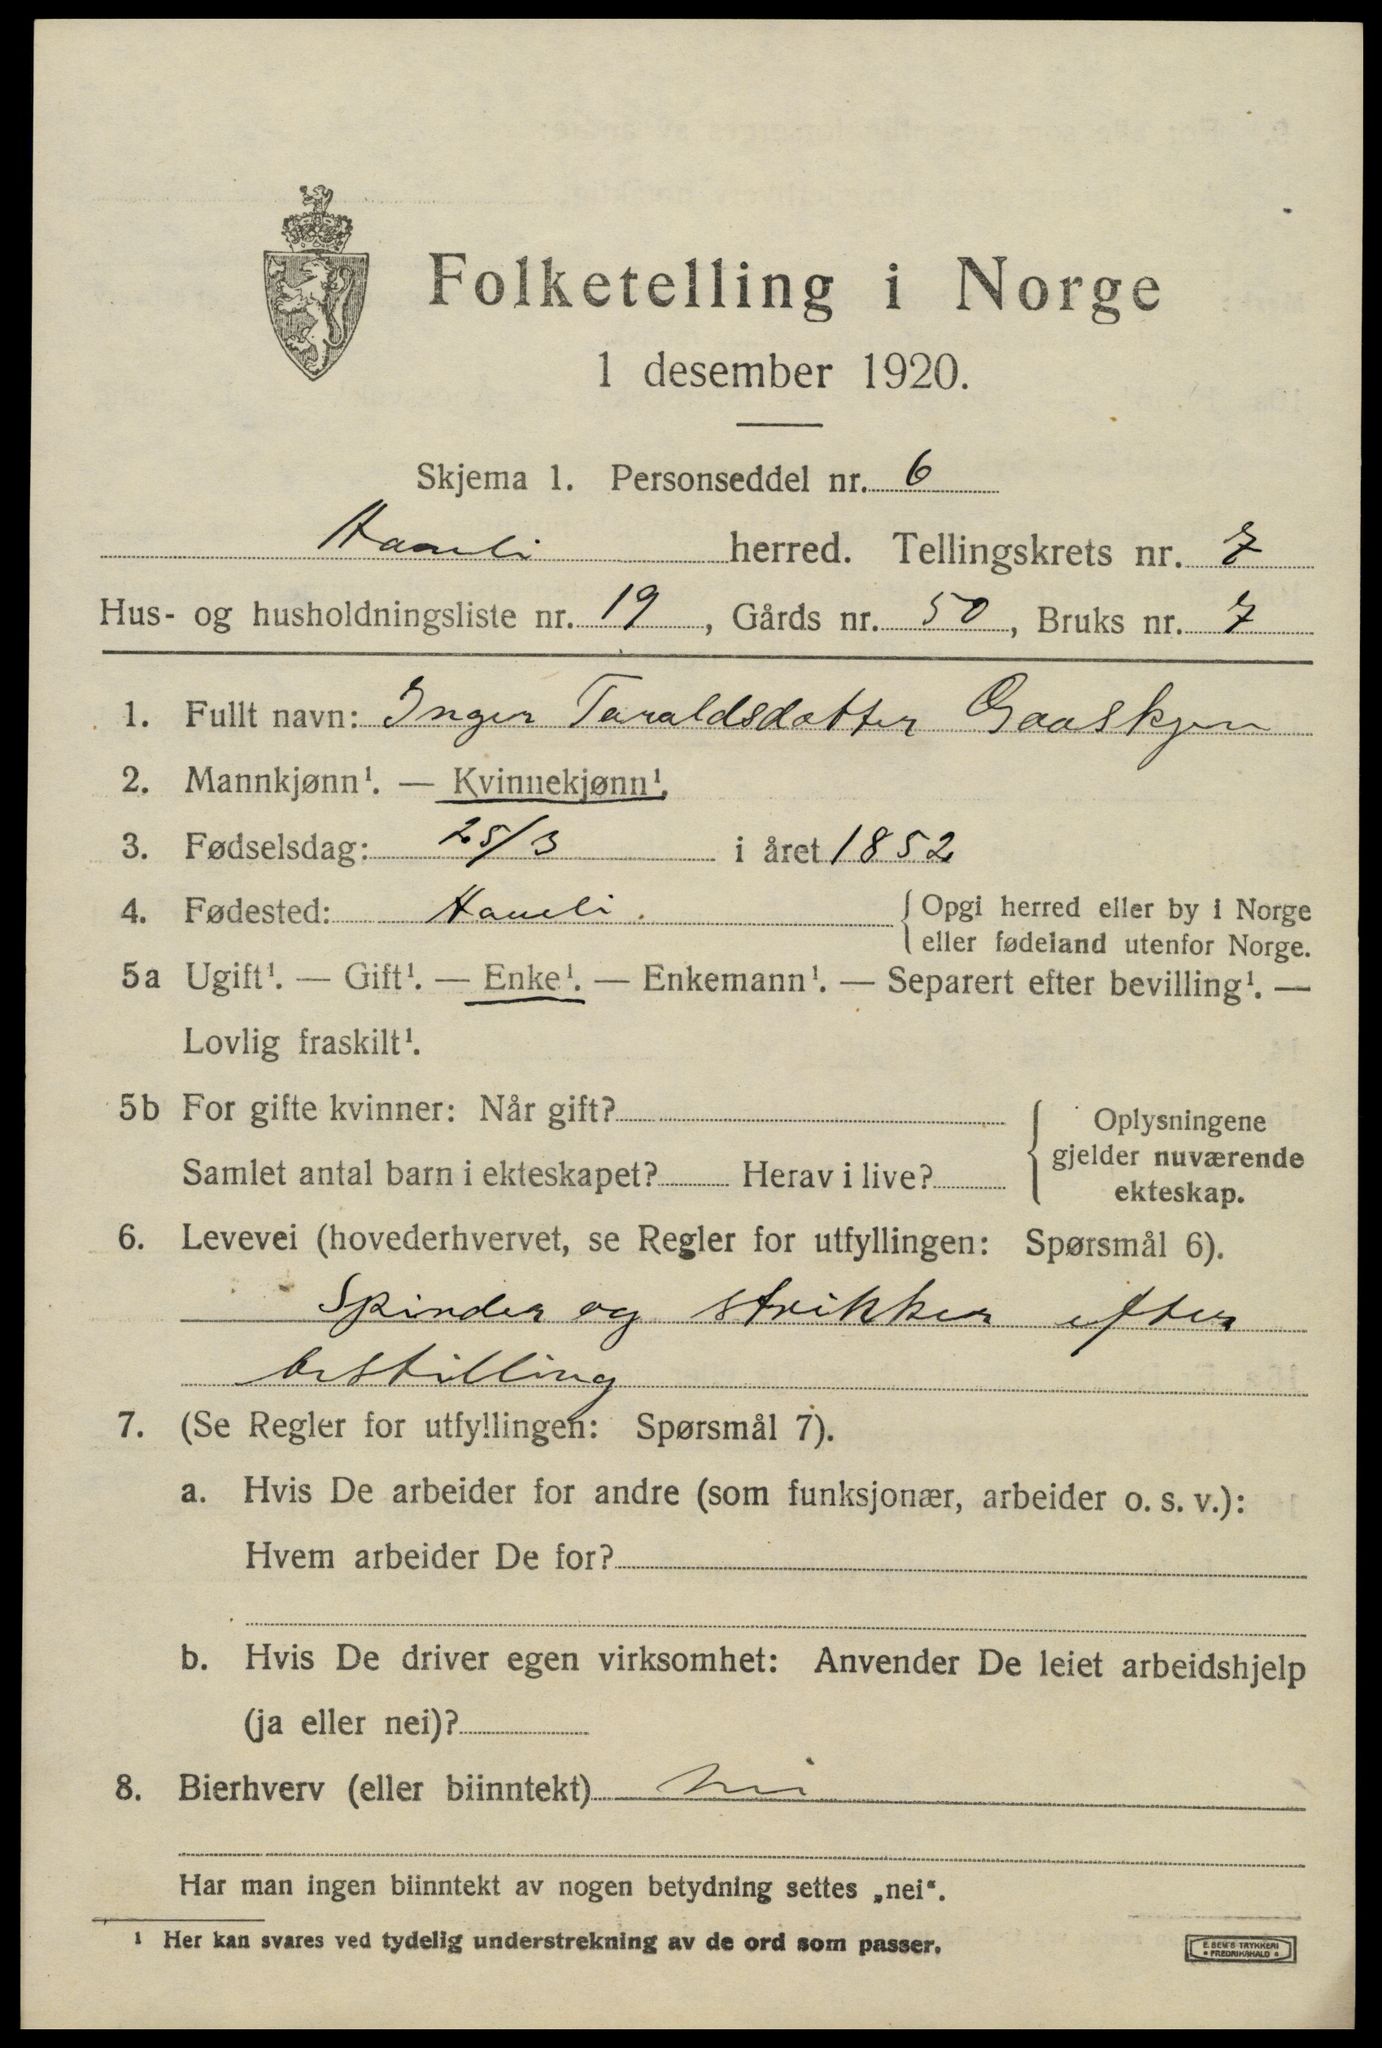 Folketelling i Norge
1 desember 1920.
Skjema 1. Personseddel nr. 6
herred. Tellingskrets nr. 7
Hus- og husholdningsliste nr. 19, Gårds nr. 50, Bruks nr. 7
1. Fullt navn: Inger Taraldsdatter Gaaskjen
2. Mannkjønn¹. — Kvinnekjønn¹.
3. Fødselsdag: 25/3 i året 1852
4. Fødested: { Opgi herred eller by i Norge
eller fødeland utenfor Norge.
5a Ugift¹. — Gift¹. — Enke¹. — Enkemann¹. — Separert efter bevilling¹. —
Lovlig fraskilt¹.
5b For gifte kvinner: Når gift?
Samlet antal barn i ekteskapet? Herav i live?
{ Oplysningene
gjelder nuværende
ekteskap.
6. Levevei (hovederhvervet, se Regler for utfyllingen: Spørsmål 6).
Spinder og strikker efter
bestilling
7. (Se Regler for utfyllingen: Spørsmål 7).
a. Hvis De arbeider for andre (som funksjonær, arbeider o. s. v.):
Hvem arbeider De for?
b. Hvis De driver egen virksomhet: Anvender De leiet arbeidshjelp
(ja eller nei)?
8. Bierhverv (eller biinntekt) nei
Har man ingen biinntekt av nogen betydning settes „nei“.
¹ Her kan svares ved tydelig understrekning av de ord som passer.
E. SEM'S TRYKKERI
• FREDRIKSHALD •